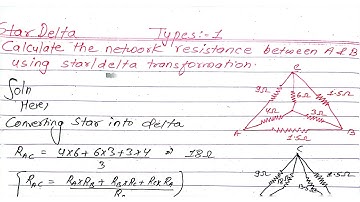 Star Delta Types:- 1
Calculate the network resistance between A & B
using star/delta transformation.
Soln
Here,
Converting star into delta
R_AC = 4x6 + 6x3 + 3x4 / 3 = 18Ω
R_AC = R_A x R_B + R_B x R_C + R_C x R_A
C
9Ω 6Ω 1.5Ω
4Ω 3Ω
A B
1.5Ω
C
9Ω 1.5Ω